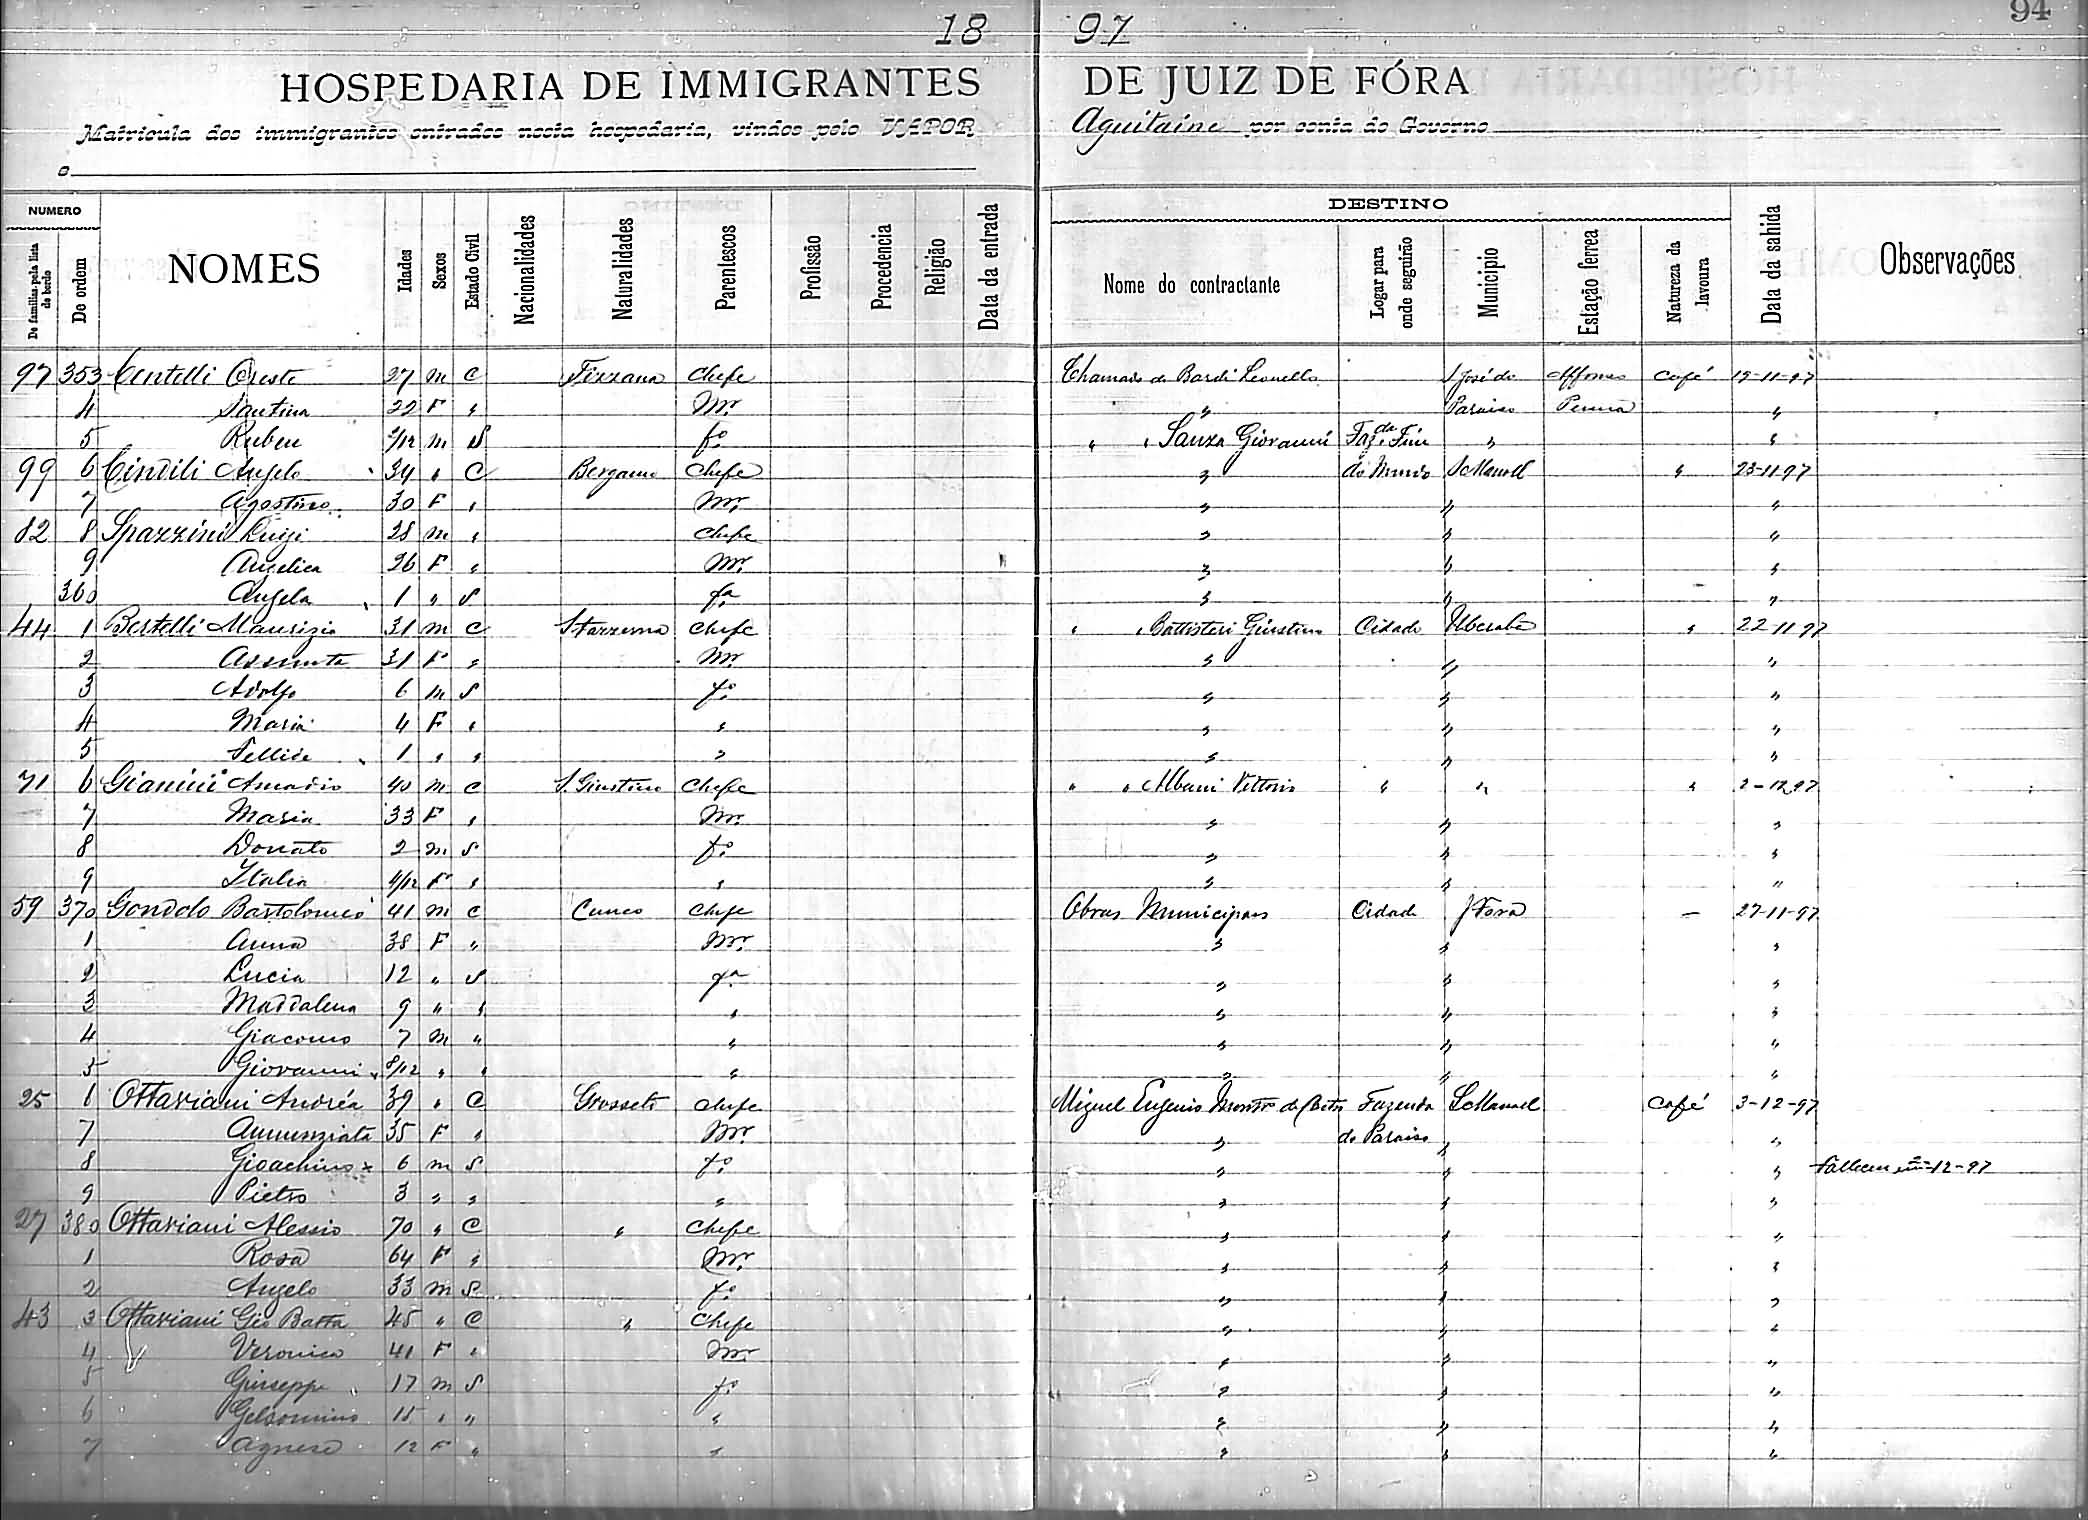 94
18 97
HOSPEDARIA DE IMMIGRANTES DE JUIZ DE FÓRA
Matricula dos immigrantes entrados nesta hospedaria, vindos pelo VAPOR Aquitaine por conta do Governo
o
NUMERO DESTINO
De familias pela lista de bordo De ordem NOMES Idades Sexos Estado Civil Nacionalidades Naturalidades Parentescos Profissão Procedencia Religião Data da entrada Nome do contractante Logar para onde seguirão Municipio Estação ferrea Natureza da lavoura Data da sahida Observações
97 353 Centelli Oreste 27 m C Fizzana Chefe Chamado de Bardi Leonello S José do Affonso Café 19-11-97
4 Santina 22 F " Mr. " Paraiso Penna "
5 Ruben /12 m S fo. " " Sanza Giovanni Faz. da Fim " "
99 6 Cindili Angelo 34 " C Bergamo Chefe " do Mundo S Manoel " 23-11-97
7 Agostino 30 F " Mr. " " "
82 8 Spazzini Luigi 28 m " Chefe " " "
9 Angelica 26 F " Mr. " " "
360 Angela 1 " S fa. " " "
44 1 Bertelli Maurizio 31 m C Stazzema Chefe " " Battisteri Giustino Cidade Uberaba " 22-11-97
2 Assunta 31 F " Mr. " " "
3 Adolfo 6 m S fo. " " "
4 Maria 4 F " " " " "
5 Fellide 1 " " " " " "
71 6 Gianini Amadio 40 m C S. Giustino Chefe " " Albani Vittorio " " " 2-12-97
7 Maria 33 F " Mr. " " "
8 Donato 2 m S fo. " " "
9 Italia 4/12 F " " " " "
59 370 Gondolo Bartolomeo 41 m C Cuneo Chefe Obras Municipaes Cidade J Fora — 27-11-97
1 Anna 38 F " Mr. " " "
2 Lucia 12 " S fa. " " "
3 Maddalena 9 " " " " " "
4 Giacomo 7 m " " " " "
5 Giovanni 8/12 " " " " " "
25 1 Ottaviani Andréa 39 " C Grosseto Chefe Miguel Eugenio Monteiro de Fazenda S Manoel Café 3-12-97
7 Annunziata 35 F " Mr. " do Paraiso " "
8 Gioachino x 6 m S fo. " " " Falleceu -12-97
9 Pietro 3 " " " " " "
27 380 Ottaviani Alessio 70 " C " Chefe " " "
1 Rosa 64 F " Mr. " " "
2 Angelo 33 m S fo. " " "
43 3 Ottaviani Gio Batta 45 " C " Chefe " " "
4 Veronica 41 F " Mr. " " "
5 Giuseppe 17 m S fo. " " "
6 Gelsomino 15 " " " " " "
7 Agnese 12 F " " " " "